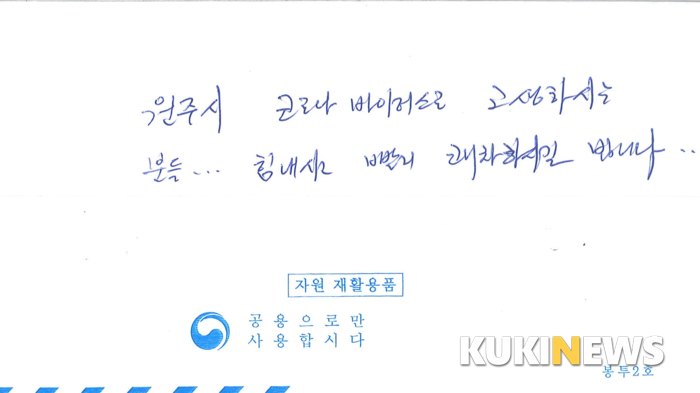 원주시 코로나 바이러스로 고생하시는
분들... 힘내시고 빨리 쾌차하시길 빕니다..
자원 재활용품
공용으로만
사용합시다
KUKINEWS
봉투2호